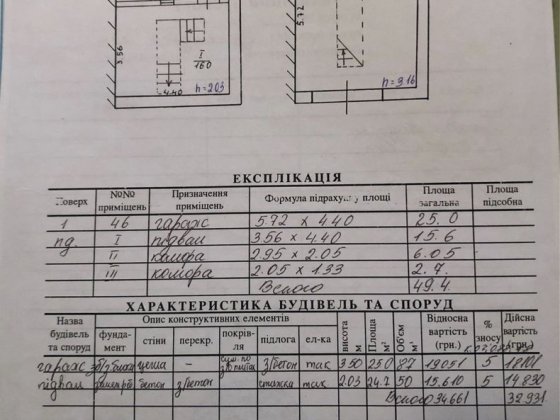 3.56
I
160
4.40
h=203
5.72
h=3.16
ЕКСПЛІКАЦІЯ
Поверх №№ приміщень Призначення приміщень Формула підрахунку площі Площа загальна Площа підсобна
1 46 гараж 5.72 × 4.40 25.0
пд I підвал 3.56 × 4.40 15.6
II комора 2.95 × 2.05 6.05
III комора 2.05 × 1.33 2.7
Всього 49.4
ХАРАКТЕРИСТИКА БУДІВЕЛЬ ТА СПОРУД
Назва будівель та споруд Опис конструктивних елементів висота м Площа м Об'єм м³ Відносна вартість (грн.) % зносу Дійсна вартість (грн.)
фундамент стіни перекр. покрівля підлога ел-ка
гараж цегла – з/бетон так 3.50 25.0 87 19051 5 18101
підвал бетон з/бетон стяжка так 2.03 24.7 50 15.610 5 14.830
Всього 34661 32931